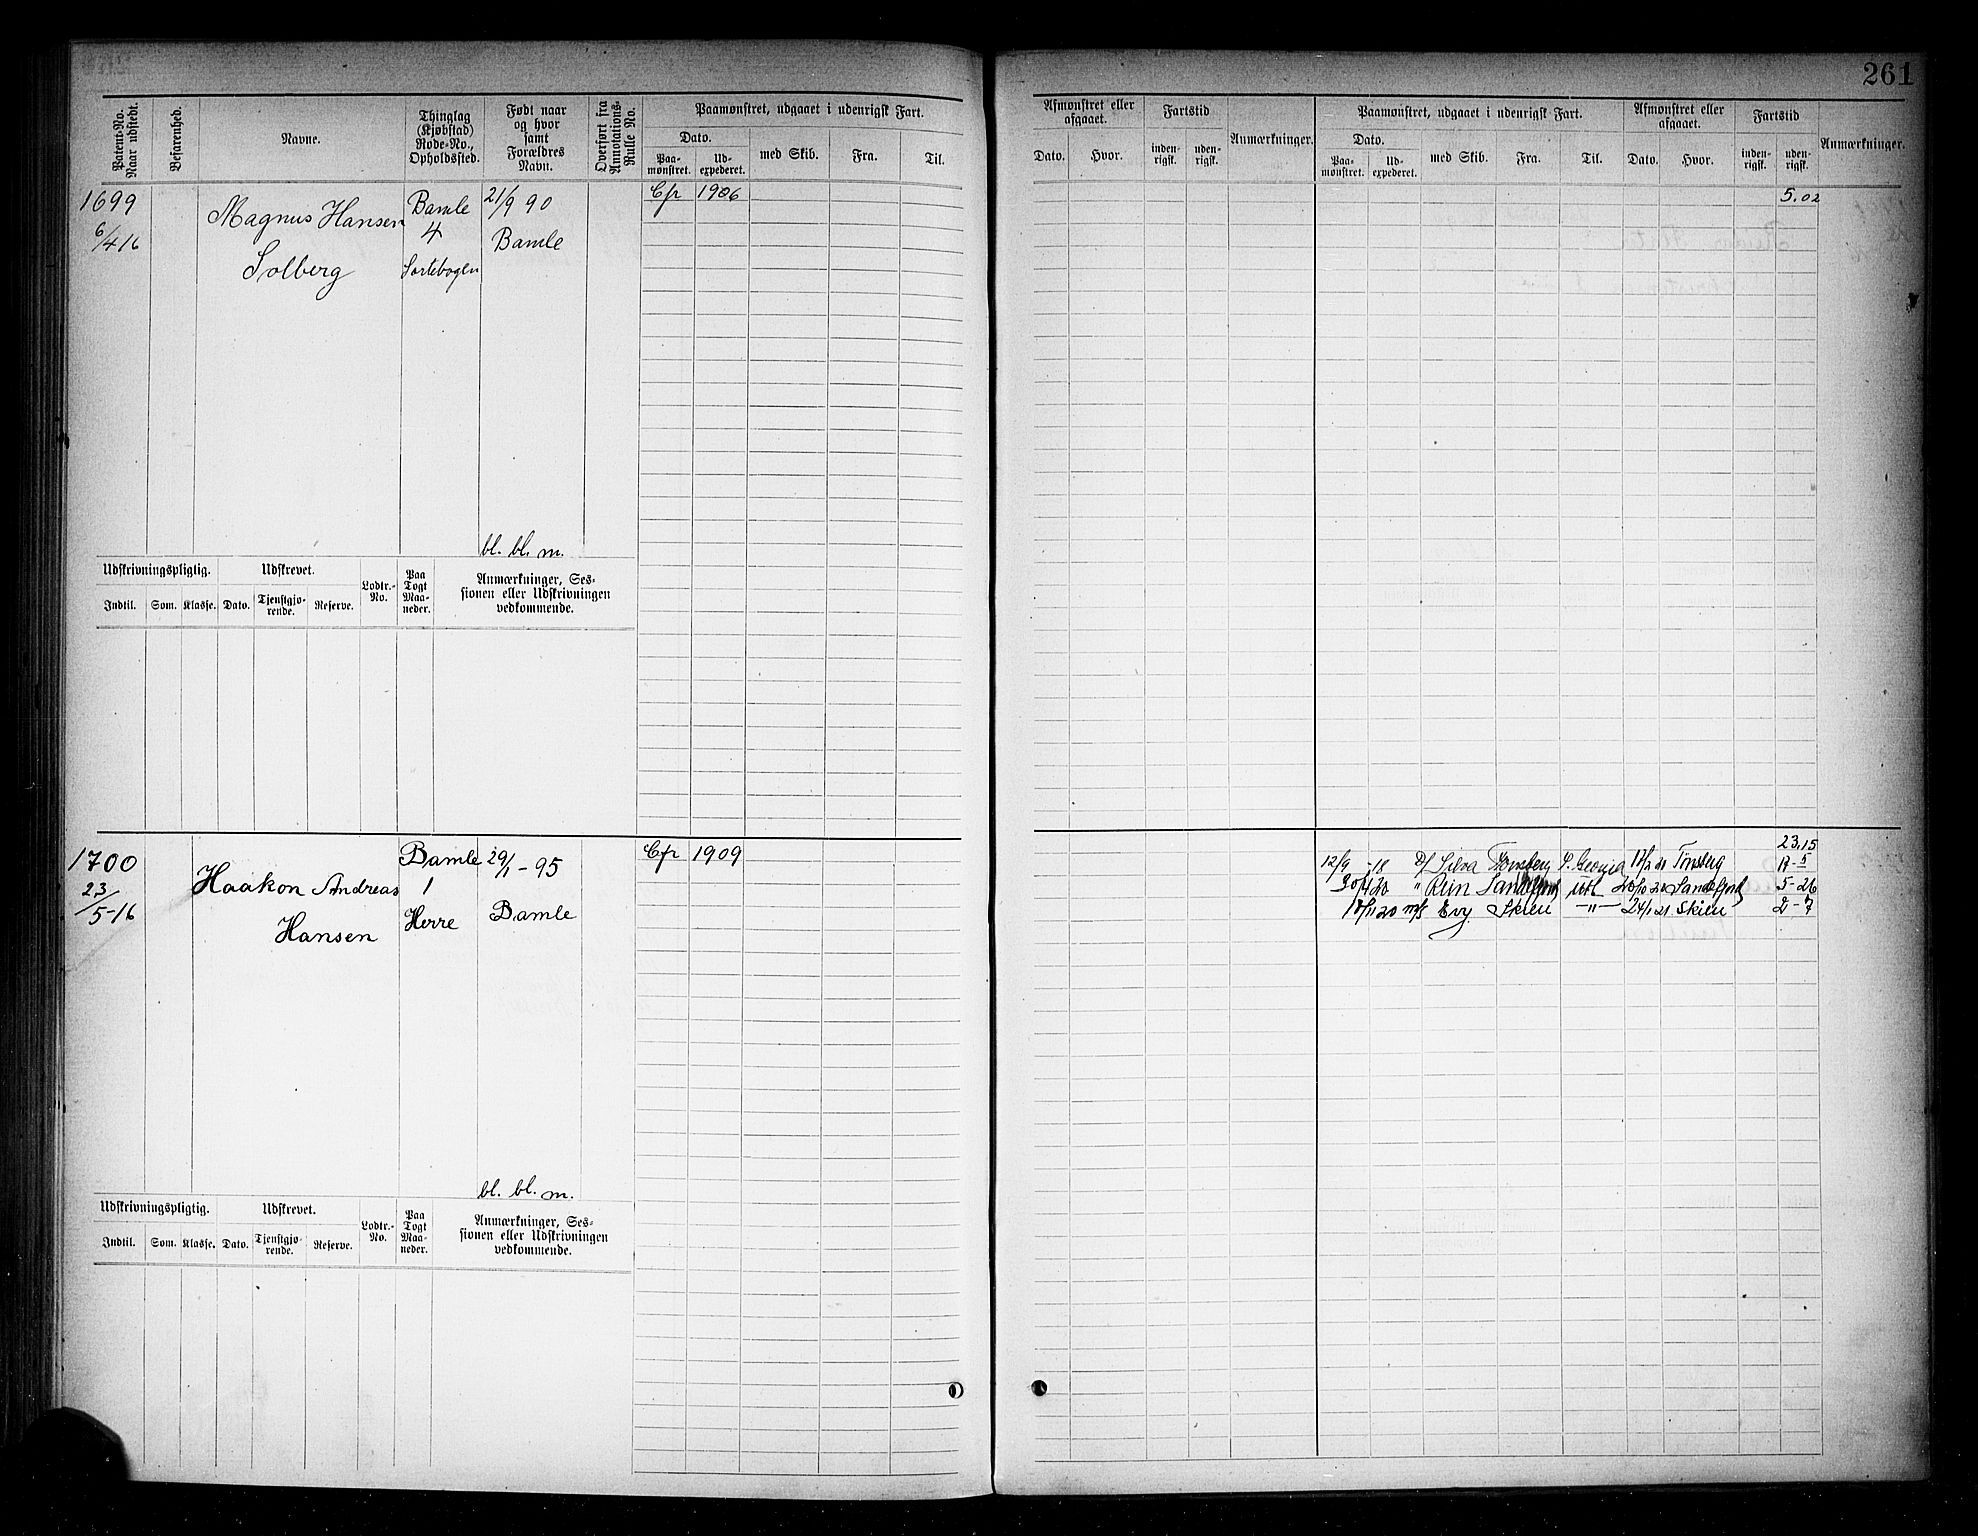 261
Patent-No. Naar udstedt.
Befarenhed.
Navne.
Thinglag (Kjøbstad) Rode-No., Opholdssted.
Født naar og hvor samt Forældres Navn.
Overført fra Annotations-Rulle No.
Paamønstret, udgaaet i udenrigsk Fart.
Dato.
Paa-mønstret.
Ud-expederet.
med Skib.
Fra.
Til.
Afmønstret eller afgaaet.
Dato.
Hvor.
Fartstid
inden-rigsk.
uden-rigsk.
Anmærkninger.
Paamønstret, udgaaet i udenrigsk Fart.
Dato.
Paa-mønstret.
Ud-expederet.
med Skib.
Fra.
Til.
Afmønstret eller afgaaet.
Dato.
Hvor.
Fartstid
inden-rigsk.
uden-rigsk.
Anmærkninger.
1699
6/4 16
Magnus Hansen
Solberg
Bamle
4
Sortebogen
21/9 90
Bamle
1906
5.02
bl. bl. m.
Udskrivningspligtig.
Udskrevet.
Lodtr.-No.
Paa Togt Maa-neder.
Anmærkninger, Ses-
sionen eller Udskrivningen
vedkommende.
Indtil.
Som.
Klasse.
Dato.
Tjenstgjø-rende.
Reserve.
1700
23/5-16
Haakon Andreas
Hansen
Bamle
1
Herre
29/1-95
Bamle
1909
23.15
12/9 -18 Silva S. Georgia Tønsberg
" Sandefjord
m/s Evy Skien -"- 24/1 21 Skien 2-7
5-26
bl. bl. m.
Udskrivningspligtig.
Udskrevet.
Lodtr.-No.
Paa Togt Maa-neder.
Anmærkninger, Ses-
sionen eller Udskrivningen
vedkommende.
Indtil.
Som.
Klasse.
Dato.
Tjenstgjø-rende.
Reserve.